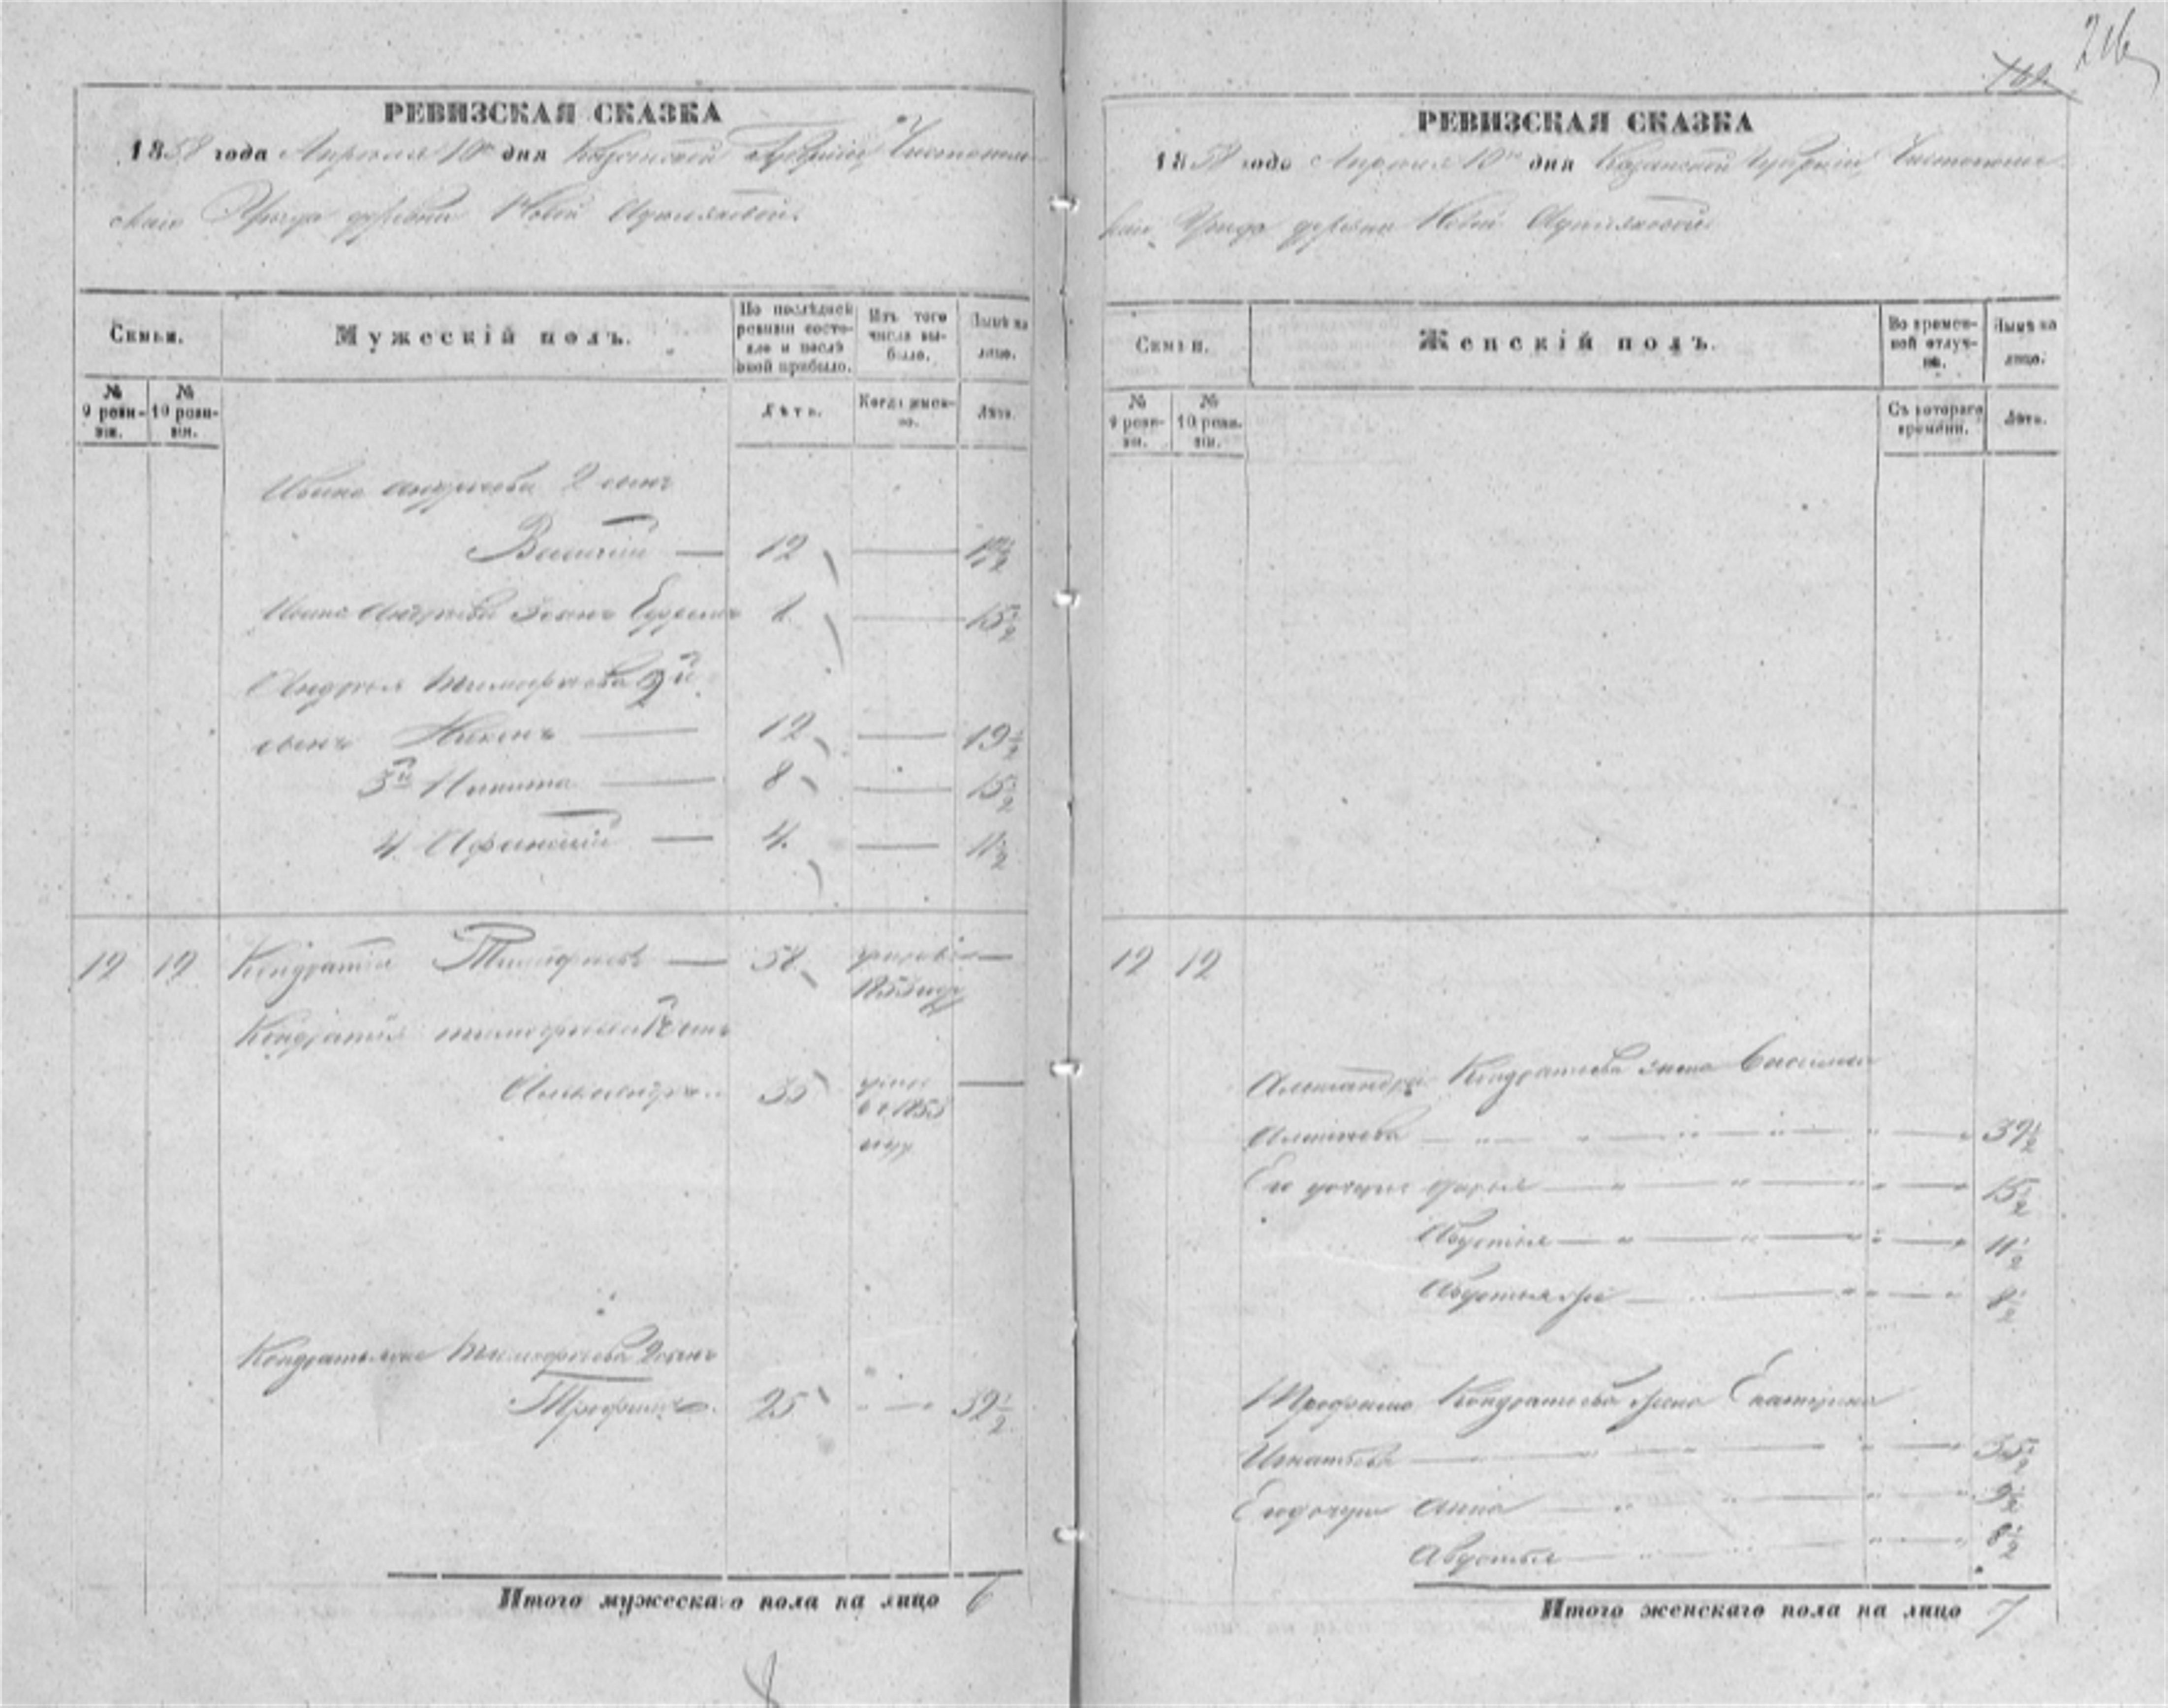 216
РЕВИЗСКАЯ СКАЗКА
1858 года Апреля 10го дня Казанской Губернии Чистополь
скаго Уезда деревни Новой
Семьи.
Мужескій полъ.
По послѣдней ревизіи состояло и послѣ оной прибыло.
Изъ того числа выбыло.
Нынѣ на лицо.
№ 9 ревизіи.
№ 10 ревизіи.
Лѣта.
Когда именно.
Лѣта.
Ивана Андреева 2 сынъ
Василій — 12 — 19½
Ивана Андреева 3 сынъ Ефремъ 8 — 15½
Андрея Тимофеева 2й
сынъ — 12 — 19½
3й Никита — 8 — 15½
4. Афанасій — 4 — 11½
12 12 Кондратій Тимофеевъ — 58 —
Кондратія Тимофеева 1й сынъ
Александръ 35 —
Кондратія Тимофеева 2 сынъ
Трофимъ 25 — 32½
Итого мужескаго пола на лицо 6
РЕВИЗСКАЯ СКАЗКА
1858 года Апреля 10го дня Казанской Губернии Чистополь
скаго Уезда деревни Новой
Семьи.
Женскій полъ.
Во временной отлучкѣ.
Нынѣ на лицо.
№ 9 ревизіи.
№ 10 ревизіи.
Съ котораго времени.
Лѣта.
12 12
Александра Кондратьева жена
— 15½
Авдотья — 11½
Авдотья — 8½
Трофима Кондратьева жена Екатерина
Игнатьева — 35½
Его дочери Анна — 9½
Авдотья — 8½
Итого женскаго пола на лицо 7